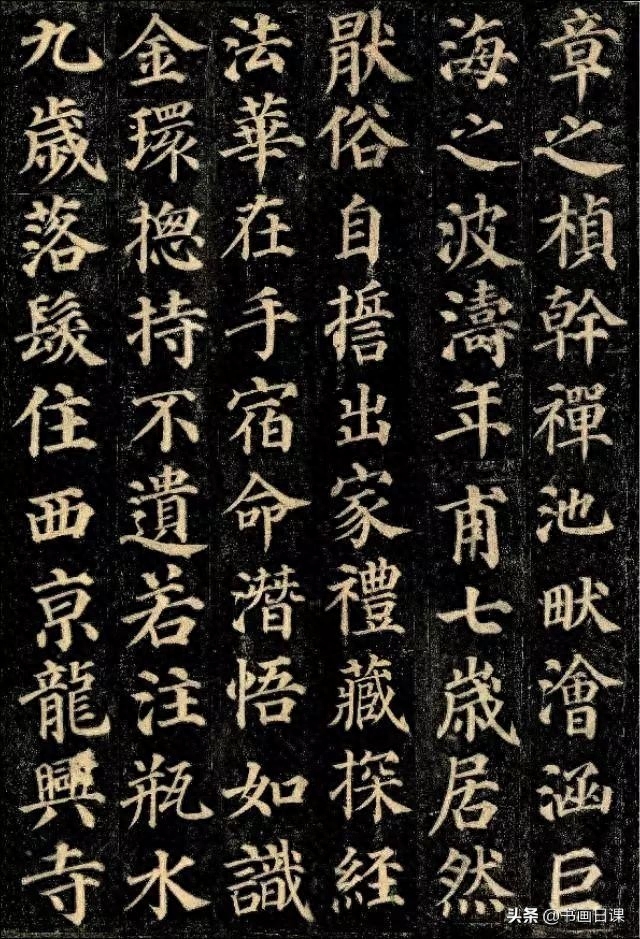 章之楨幹禪池畎澮涵巨
海之波濤年甫七歲居然
猒俗自誓出家禮藏探經
法華在手宿命潛悟如識
金環揔持不遺若注瓶水
九歲落髮住西京龍興寺
头条 @书画日课